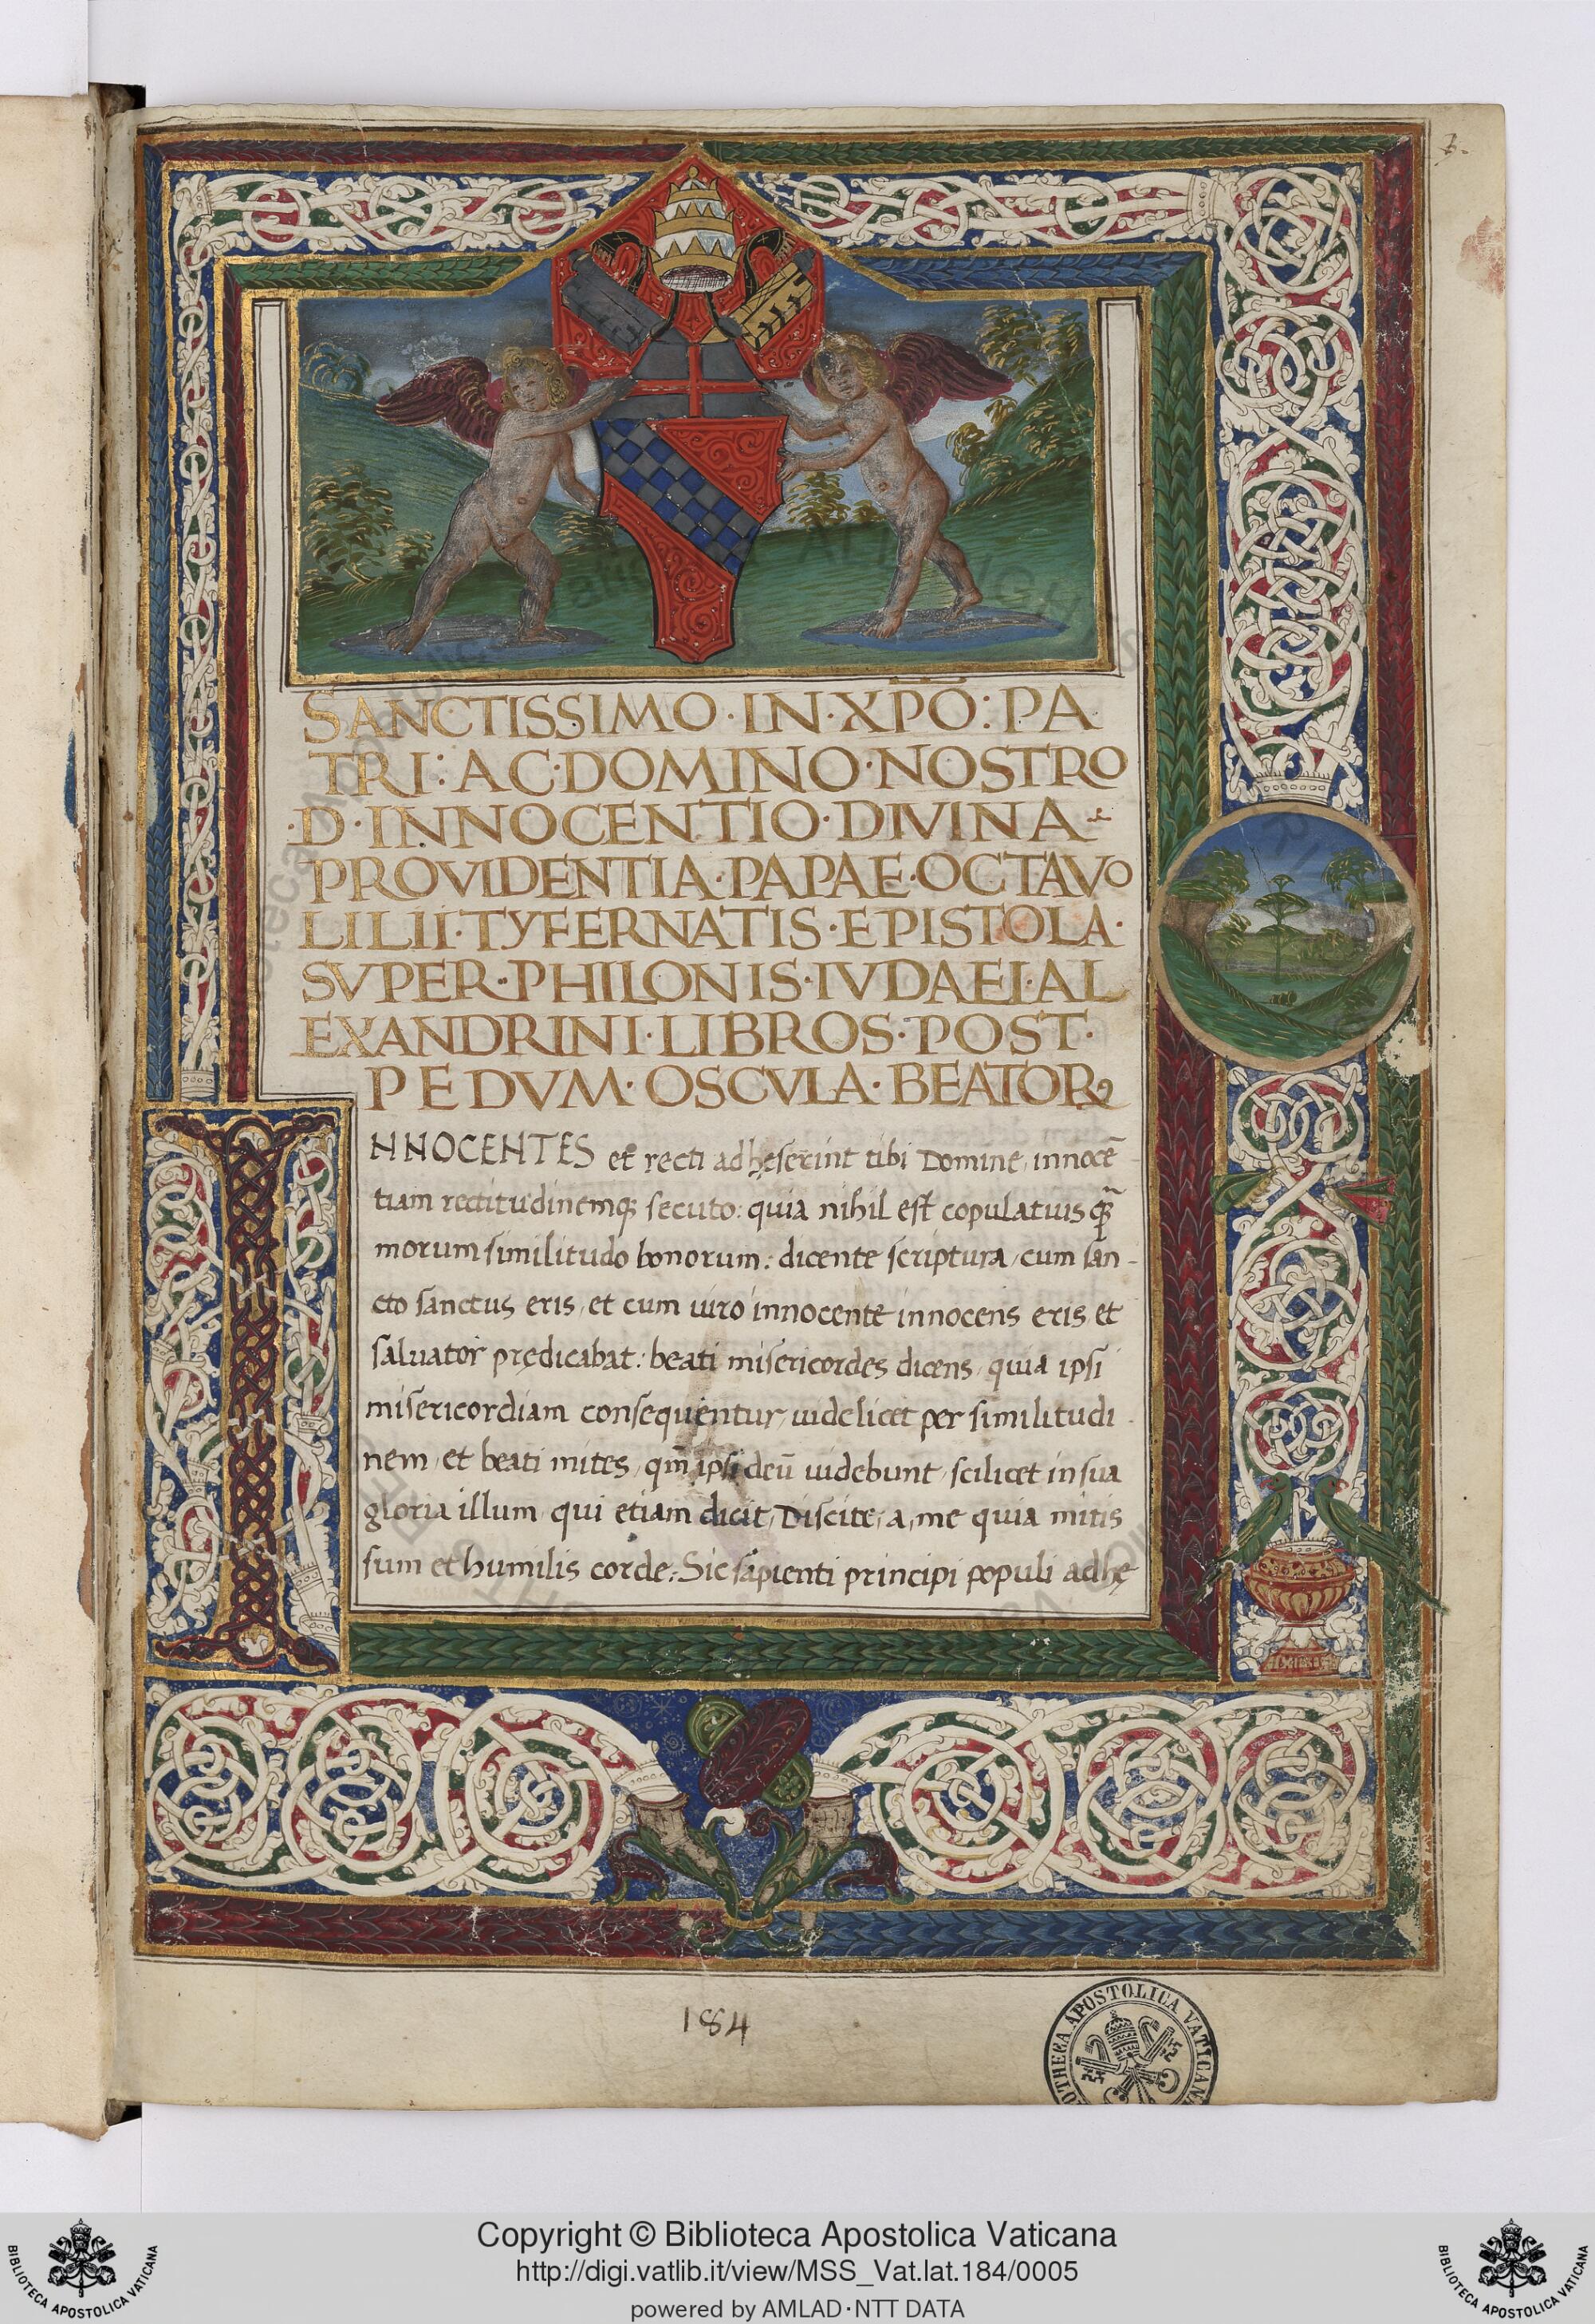 3.
SANCTISSIMO · IN · XP̄Ō : PA
TRI : AC · DOMINO · NOSTRO
· D · INNOCENTIO · DIVINA
PROVIDENTIA · PAPAE · OCTAVO
LILII · TYFERNATIS · EPISTOLA ·
SVPER · PHILONIS · IVDAEI · AL
EXANDRINI · LIBROS · POST ·
PEDVM · OSCVLA · BEATORꝜ
I
NNOCENTES et recti adheserint tibi Domine, innocē
tiam rectitudinemq; secuto: quia nihil est copulatius
morum similitudo bonorum: dicente scriptura, cum san-
cto sanctus eris, et cum uiro innocente innocens eris, et
saluator prędicabat: beati misericordes dicens, quia ipsi
misericordiam consequentur, uidelicet per similitudi
nem, et beati mites, qm̄ ipsi deū uidebunt, scilicet in sua
gloria illum, qui etiam dicit, Discite, a, me quia mitis
sum et humilis corde: Sic sapienti principi populi adhę
184
BIBLIOTHECA APOSTOLICA VATICANA
Copyright © Biblioteca Apostolica Vaticana
http://digi.vatlib.it/view/MSS_Vat.lat.184/0005
powered by AMLAD·NTT DATA
BIBLIOTECA APOSTOLICA VATICANA
BIBLIOTECA APOSTOLICA VATICANA